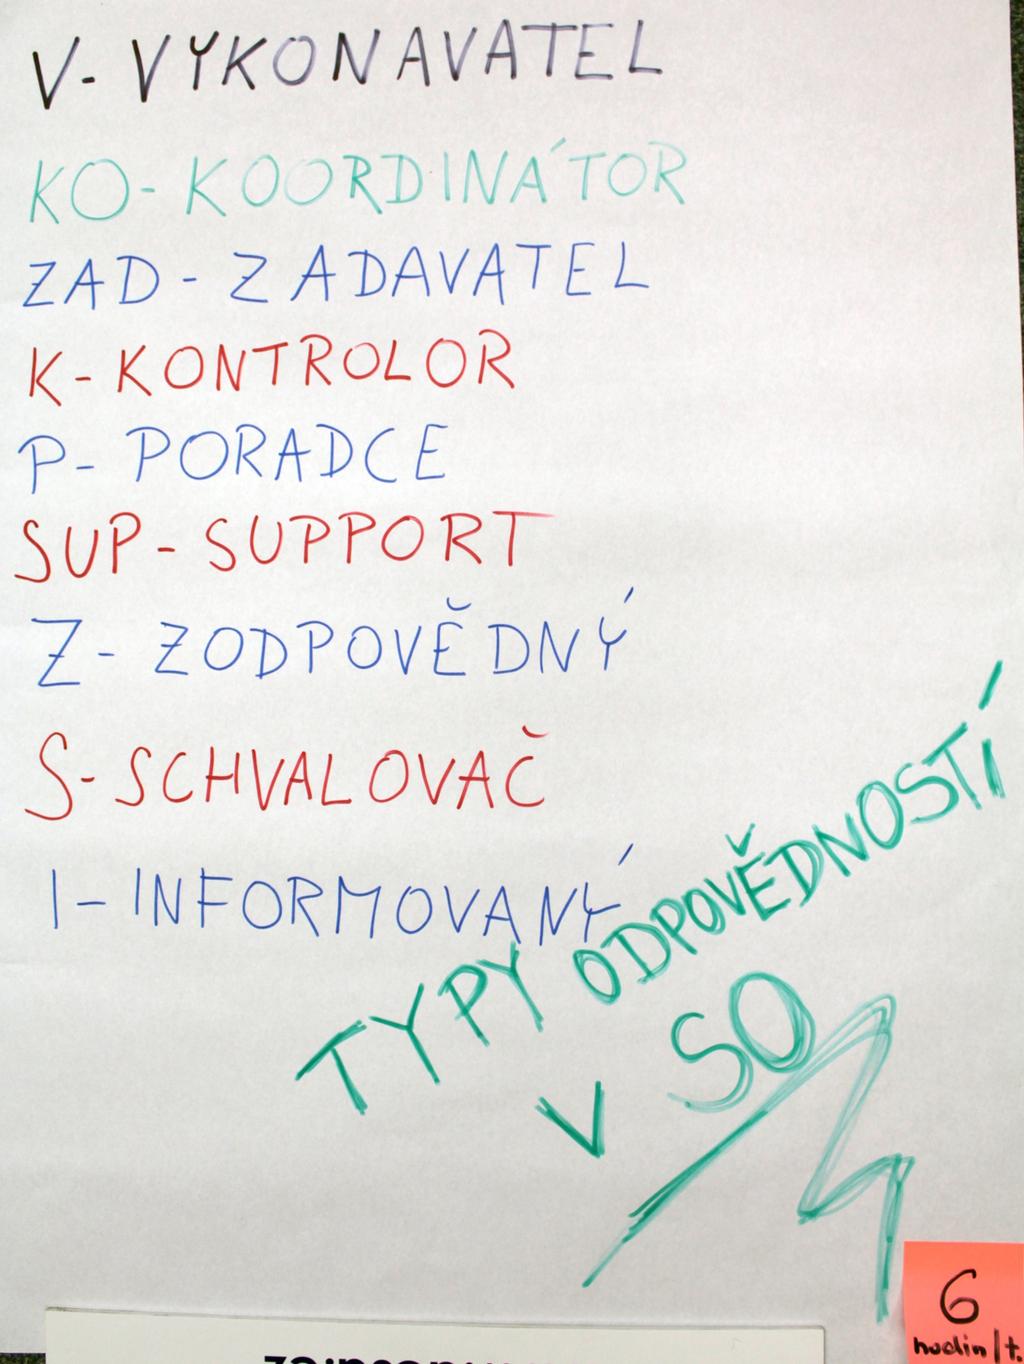 V- VYKONAVATEL
KO- KOORDINÁTOR
ZAD - ZADAVATEL
K- KONTROLOR
P- PORADCE
SUP- SUPPORT
Z- ZODPOVĚDNÝ
S- SCHVALOVAČ
I- INFORMOVANÝ
TYPY ODPOVĚDNOSTÍ
V SO
6
hodin/t.